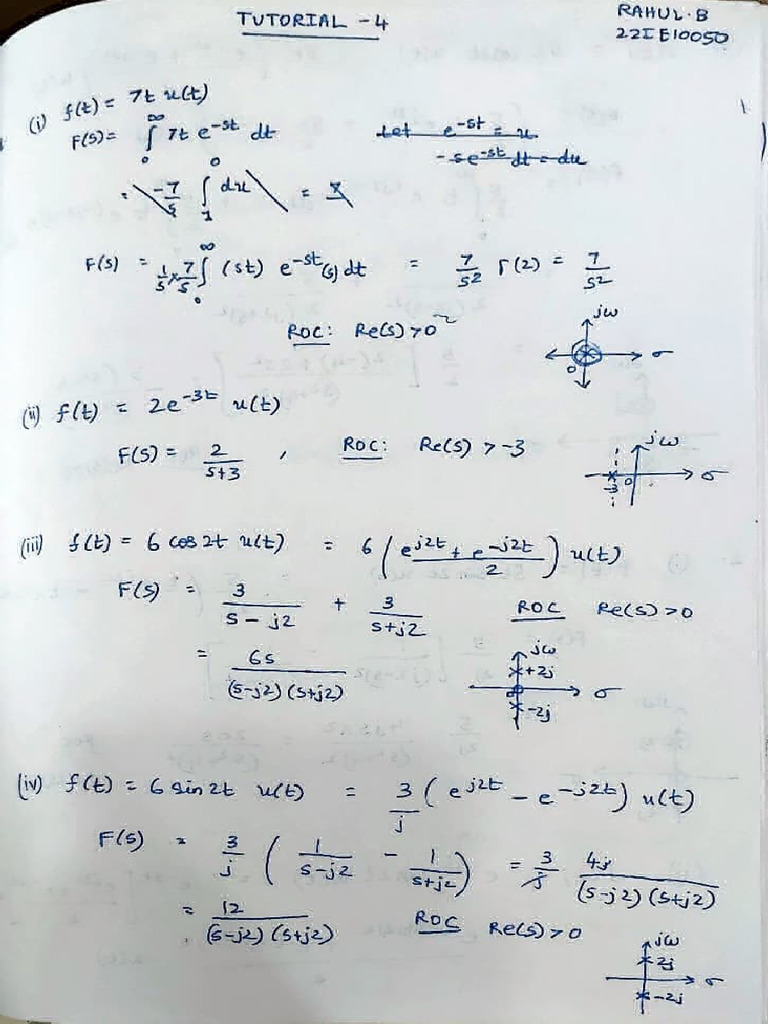 TUTORIAL - 4
RAHUL. B
22IE10050
(i) f(t) = 7t u(t)
F(s) = ∫₀^∞ 7t e^-st dt
Let e^-st = u
-se^-st dt = du
= -7/s ∫₁^0 du =
F(s) = 1/s × 7/s ∫₀^∞ (st) e^-st (s) dt = 7/s² Γ(2) = 7/s²
ROC: Re(s) > 0
jω
σ
0
(ii) f(t) = 2e^-3t u(t)
F(s) = 2/(s+3) , ROC: Re(s) > -3
jω
-3 0 σ
(iii) f(t) = 6 cos 2t u(t) = 6 ( (e^j2t + e^-j2t)/2 ) u(t)
F(s) = 3/(s-j2) + 3/(s+j2) ROC Re(s) > 0
= 6s/((s-j2)(s+j2))
jω
+2j
σ
-2j
(iv) f(t) = 6 sin 2t u(t) = 3/j ( e^j2t - e^-j2t ) u(t)
F(s) = 3/j ( 1/(s-j2) - 1/(s+j2) ) = 3/j 4j/((s-j2)(s+j2))
= 12/((s-j2)(s+j2)) ROC Re(s) > 0
jω
2j
σ
-2j